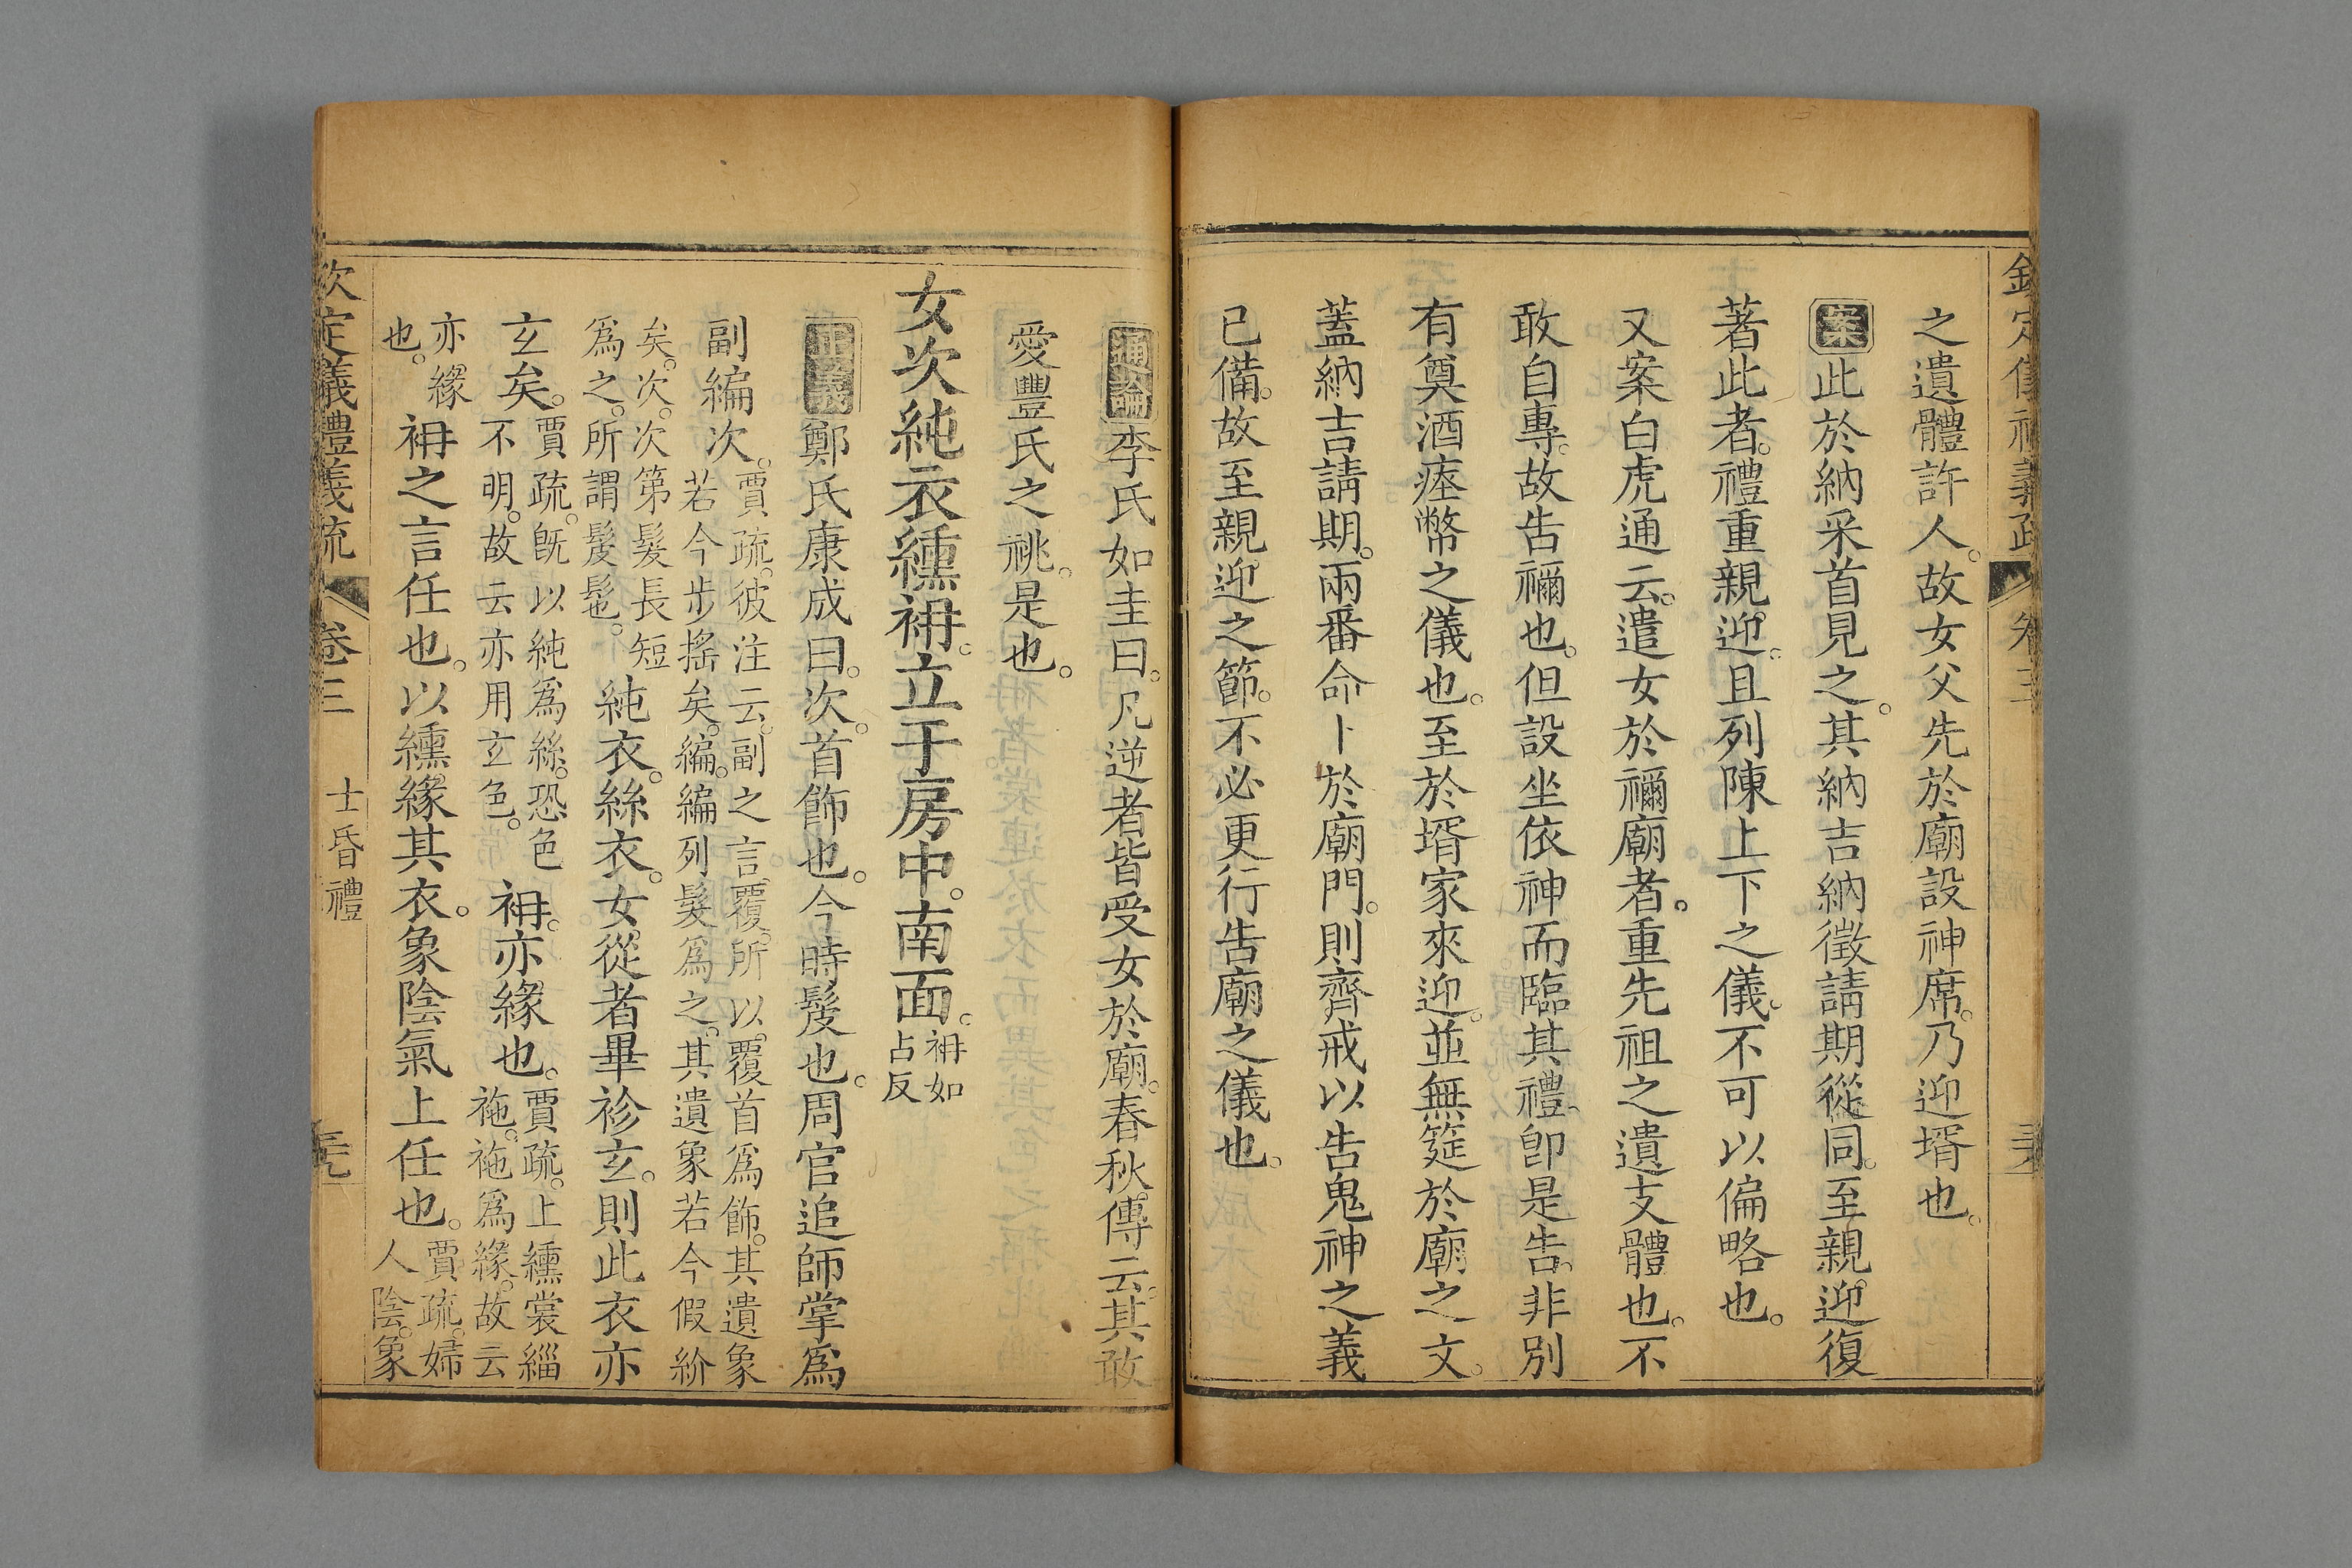 之遺體許人。故女父先於廟設神席。乃迎壻也。
案此於納采首見之。其納吉納徵請期從同。至親迎復
著此者。禮重親迎。且列陳上下之儀。不可以偏略也。
又案白虎通云。遣女於禰廟者。重先祖之遺支體也。不
敢自專。故告禰也。但設坐依神而臨其禮。卽是告。非別
有奠酒瘞幣之儀也。至於壻家來迎。並無筵於廟之文。
蓋納吉請期。兩番命卜於廟門。則齊戒以告鬼神之義
已備。故至親迎之節。不必更行告廟之儀也。
通論李氏如圭曰。凡逆者皆受女於廟。春秋傳云。其敢
愛豐氏之祧。是也。
女次純衣纁袡。立于房中。南面。袡如
占反
正義鄭氏康成曰。次。首飾也。今時髲也。周官追師掌爲
副編次。賈疏。彼注云。副之言覆。所以覆首爲飾。其遺象
若今步搖矣。編。編列髮爲之。其遺象若今假紒
矣。次。次第髮長短
爲之。所謂髲髢。純衣。絲衣。女從者畢袗玄。則此衣亦
玄矣。賈疏。旣以純爲絲。恐色
不明。故云亦用玄色。袡。亦緣也。賈疏。上纁裳緇
袘。袘爲緣。故云
亦緣
也。袡之言任也。以纁緣其衣。象陰氣上任也。賈疏。婦
人陰。象
欽定儀禮義疏 卷三 士昏禮 三九